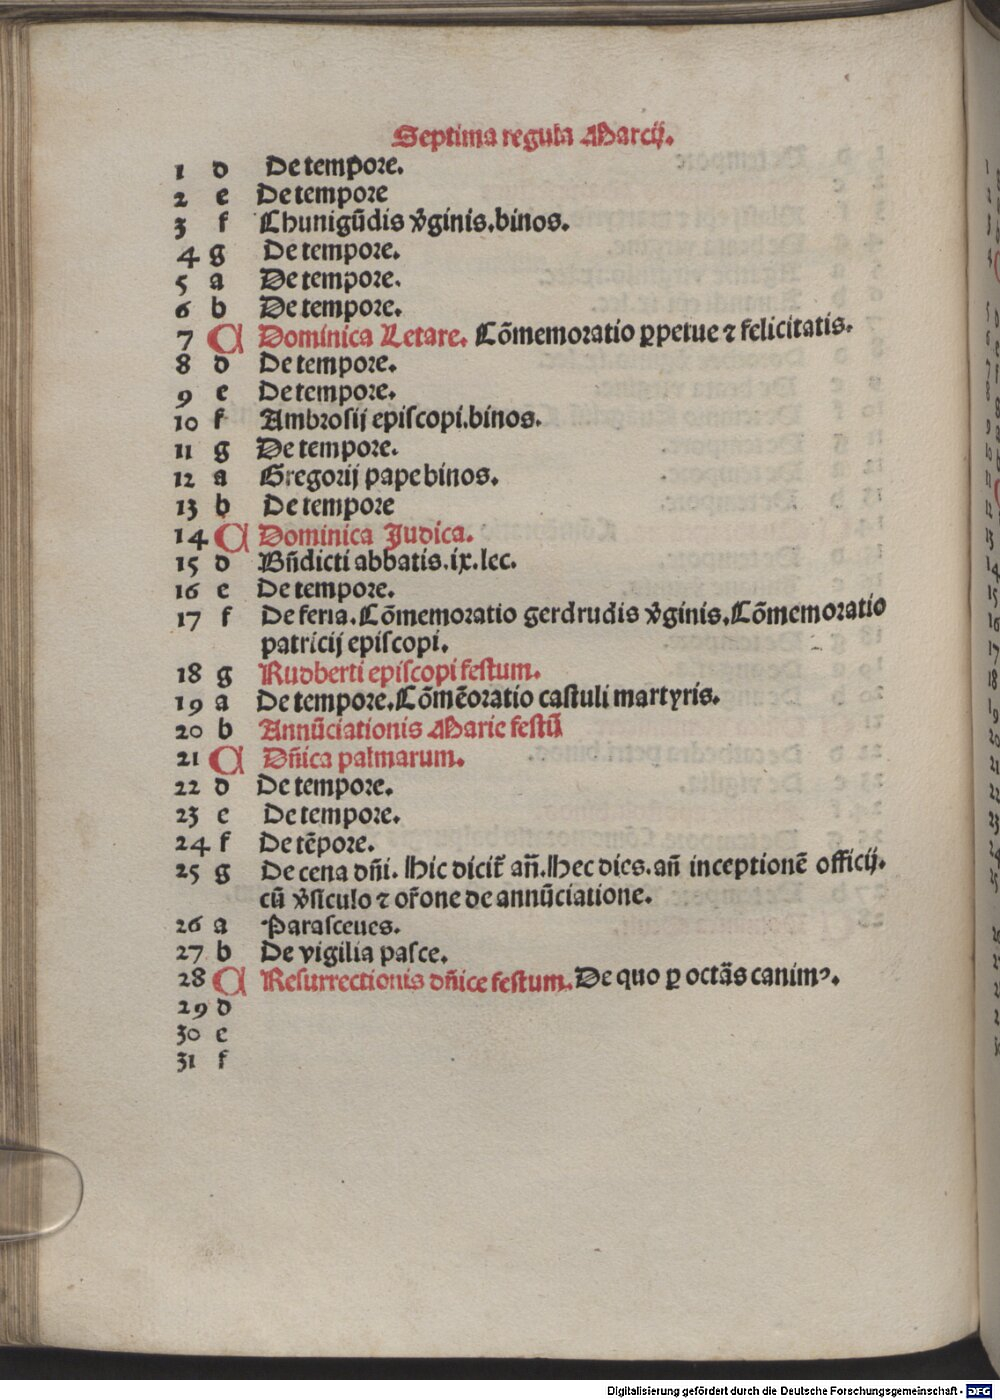 Septima regula Marcij.
1 d De tempore.
2 e De tempore
3 f Chunigūdis v̄ginis.binos.
4 g De tempore.
5 a De tempore.
6 b De tempore.
7 C Dominica Letare. Cōmemoratio ꝑpetue ⁊ felicitatis.
8 d De tempore.
9 e De tempore.
10 f Ambrosij episcopi.binos.
11 g De tempore.
12 a Gregorij pape binos.
13 b De tempore
14 C Dominica Judica.
15 d Bn̄dicti abbatis.ix.lec.
16 e De tempore.
17 f De feria.Cōmemoratio gerdrudis v̄ginis.Cōmemoratio
patricij episcopi.
18 g Rudberti episcopi festum.
19 a De tempore.Cōmēoratio castuli martyris.
20 b Annūciationis Marie festū
21 C Dn̄ica palmarum.
22 d De tempore.
23 e De tempore.
24 f De tēpore.
25 g De cena dn̄i. Hic dicit̄ an̄.Hec dies.an̄ inceptionē officij.
cū v̄siculo ⁊ or̄one de annūciatione.
26 a Parasceues.
27 b De vigilia pasce.
28 C Resurrectionis dn̄ice festum.De quo ꝑ octās canimꝰ.
29 d
30 e
31 f
Digitalisierung gefördert durch die Deutsche Forschungsgemeinschaft - DFG